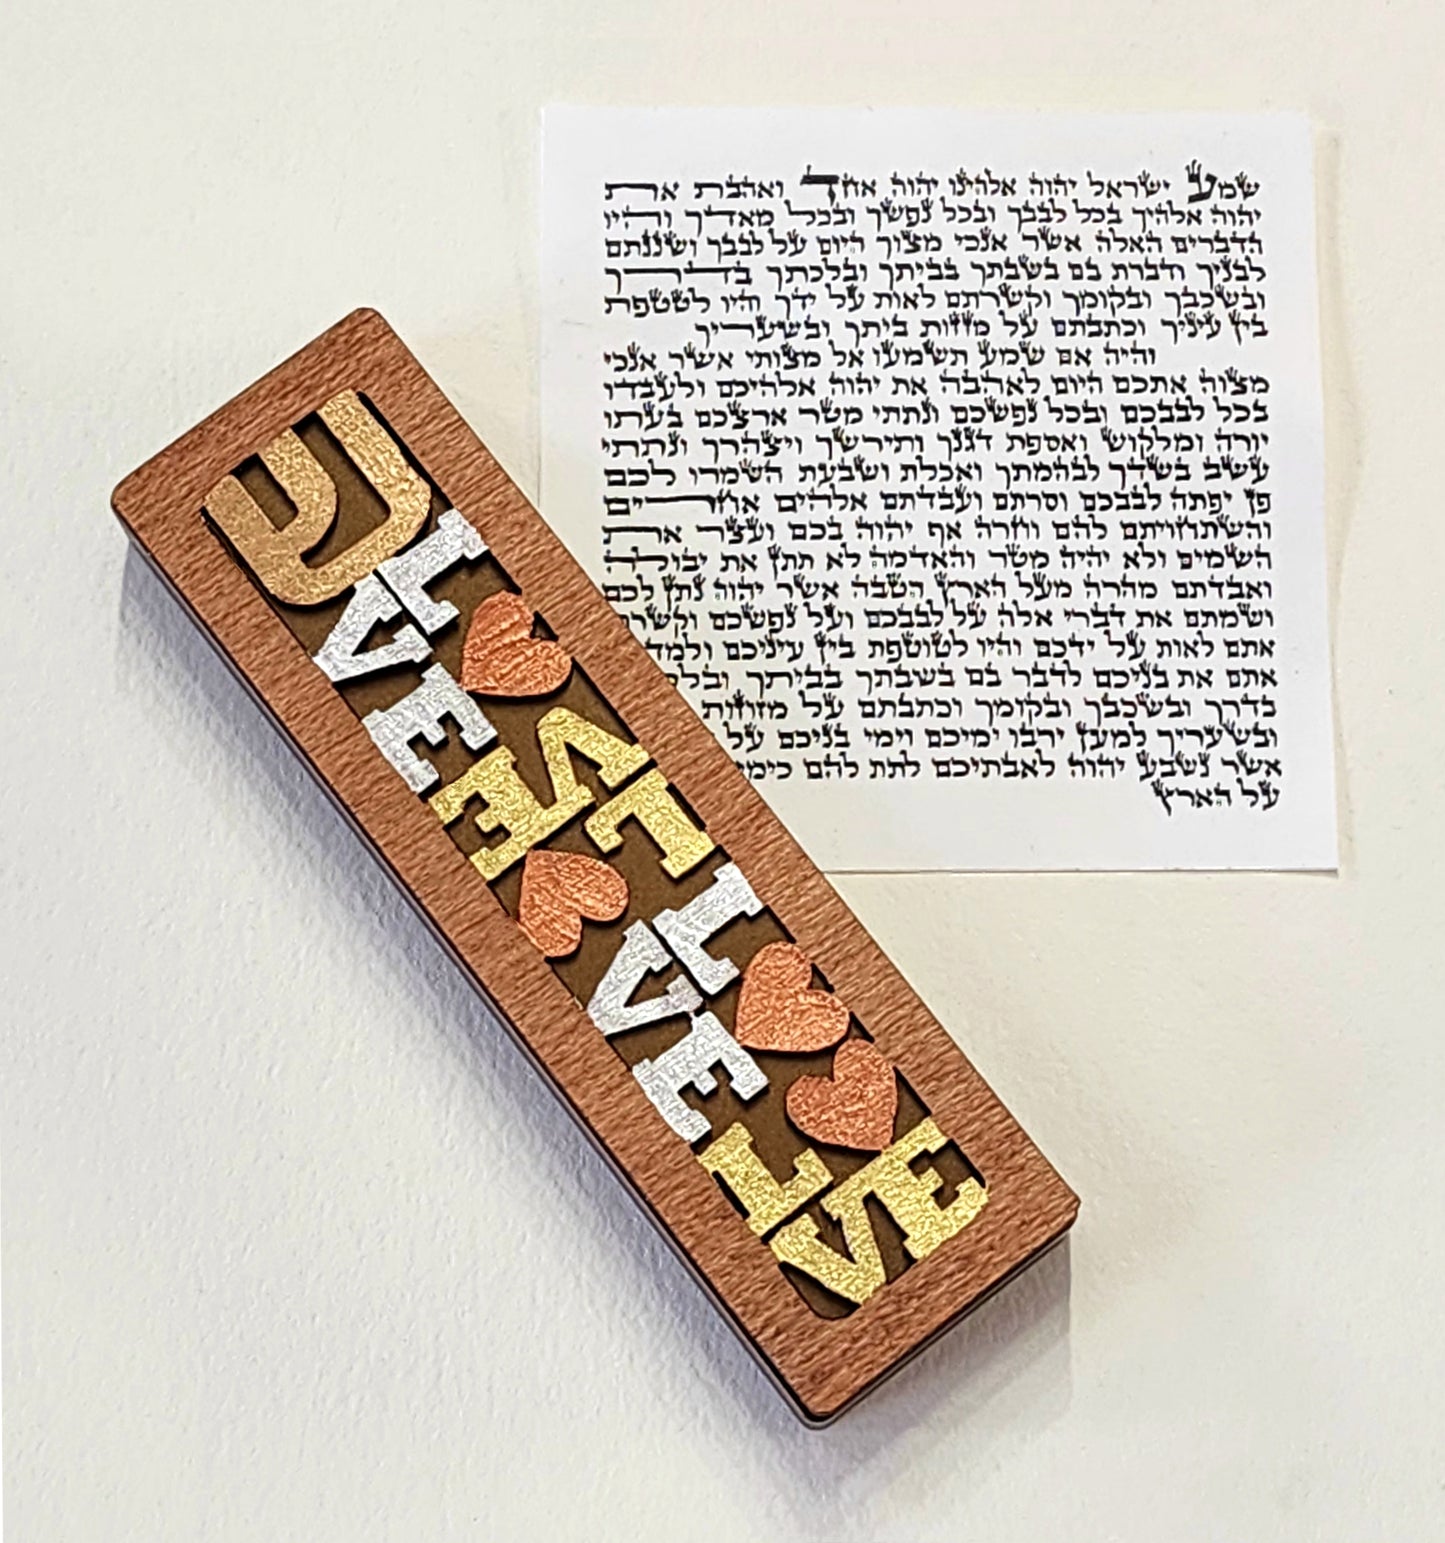 שמע ישראל יהוה אלהינו יהוה אחד ואהבת את
יהוה אלהיך בכל לבבך ובכל נפשך ובכל מאדך והיו
הדברים האלה אשר אנכי מצוך היום על לבבך ושננתם
לבניך ודברת בם בשבתך בביתך ובלכתך בדרך
ובשכבך ובקומך וקשרתם לאות על ידך והיו לטטפת
בין עיניך וכתבתם על מזזות ביתך ובשעריך
והיה אם שמע תשמעו אל מצותי אשר אנכי
מצוה אתכם היום לאהבה את יהוה אלהיכם ולעבדו
בכל לבבכם ובכל נפשכם ונתתי מטר ארצכם בעתו
יורה ומלקוש ואספת דגנך ותירשך ויצהרך ונתתי
עשב בשדך לבהמתך ואכלת ושבעת השמרו לכם
פן יפתה לבבכם וסרתם ועבדתם אלהים אחרים
והשתחויתם להם וחרה אף יהוה בכם ועצר את
השמים ולא יהיה מטר והאדמה לא תתן את יבולה
ואבדתם מהרה מעל הארץ הטבה אשר יהוה נתן לכם
ושמתם את דברי אלה על לבבכם ועל נפשכם וקשר
אתם לאות על ידכם והיו לטוטפת בין עיניכם ולמד
אתם את בניכם לדבר בם בשבתך בביתך ובלכ
בדרך ובשכבך ובקומך וכתבתם על מזוזות
ובשעריך למען ירבו ימיכם וימי בניכם על
אשר נשבע יהוה לאבתיכם לתת להם כימי
על הארץ
ש
L♥
VE
L♥
VE
L♥
VE
L♥
VE